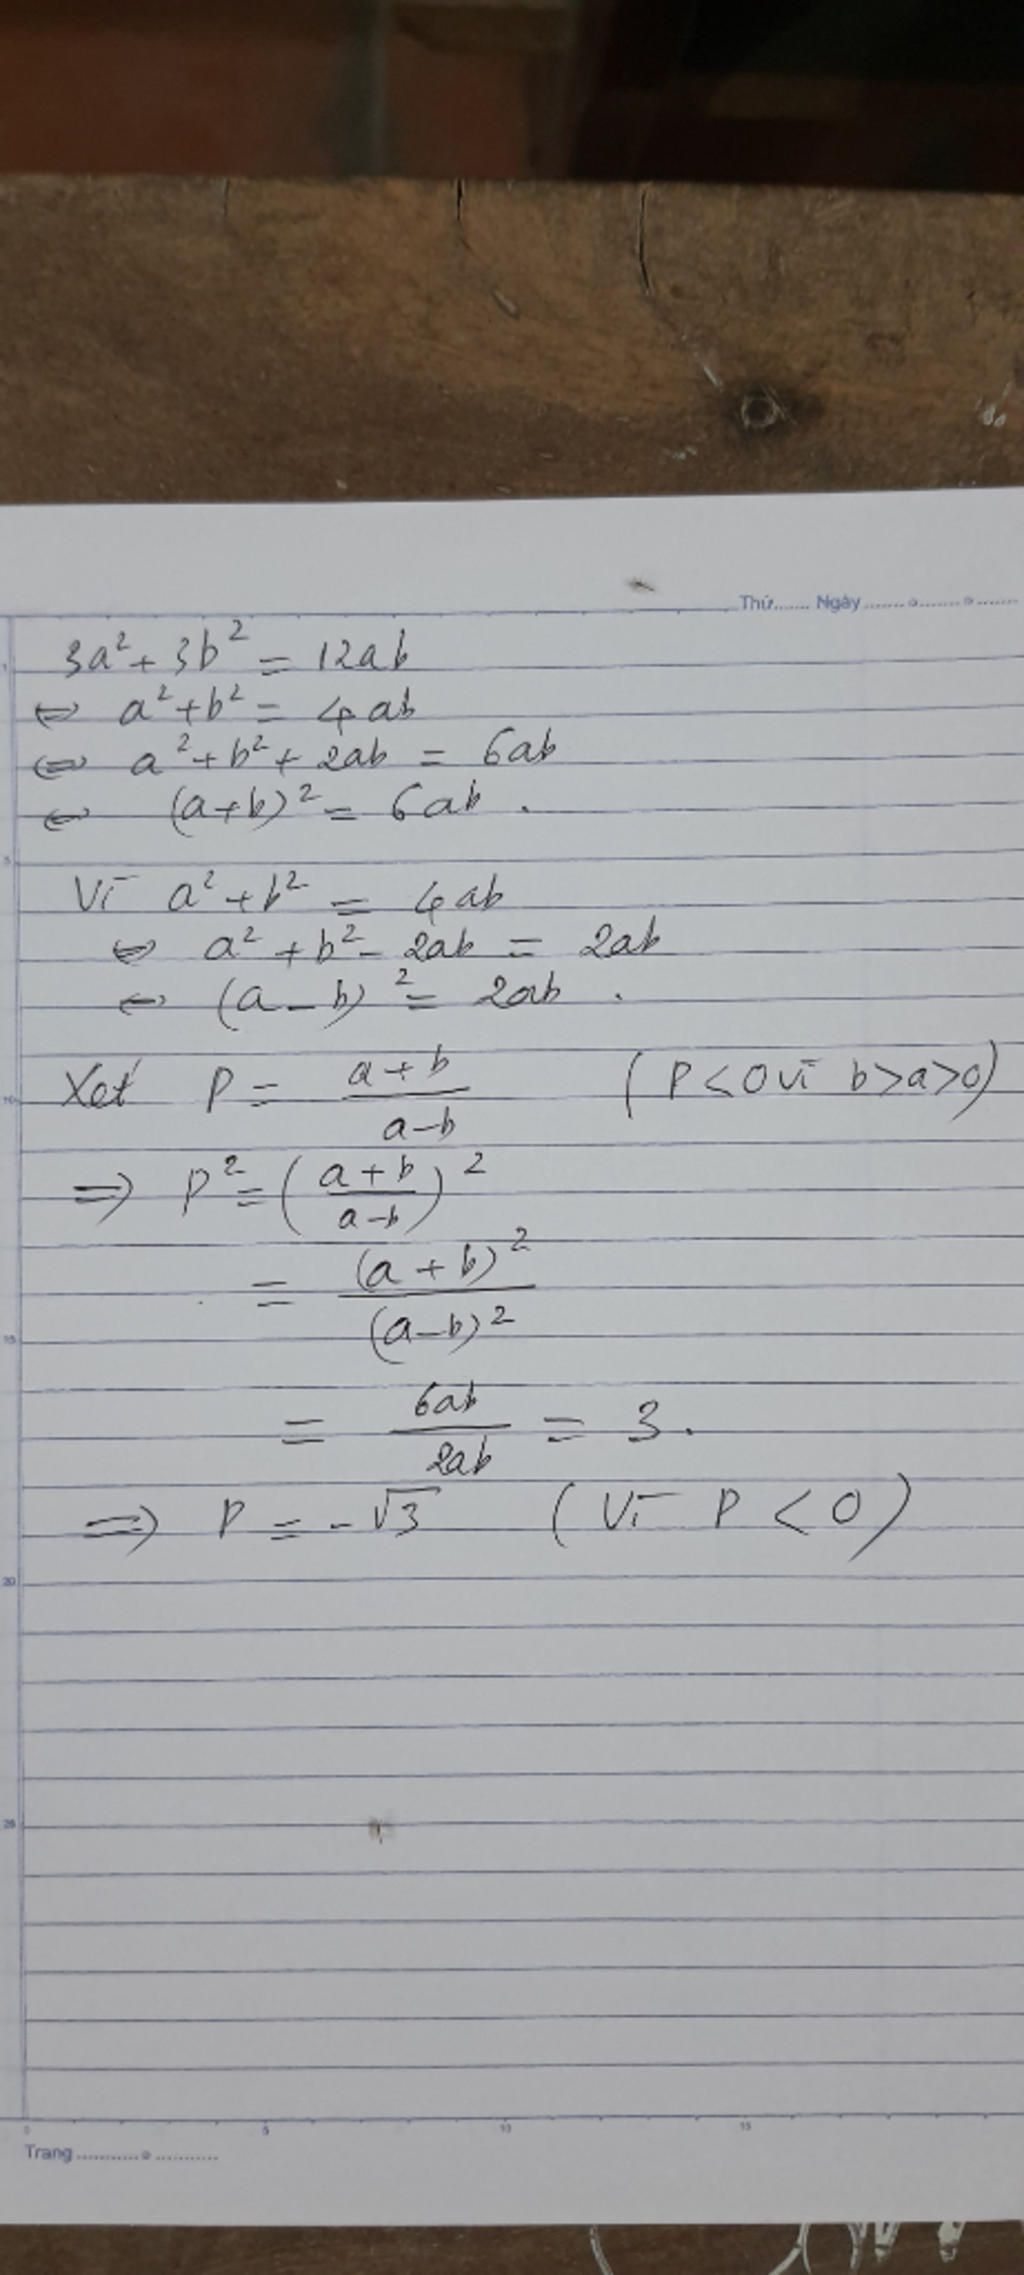 Thứ....... Ngày
3a² + 3b² = 12ab
⇔ a² + b² = 4ab
⇔ a² + b² + 2ab = 6ab
⇔ (a+b)² = 6ab .
Vì a² + b² = 4ab
⇔ a² + b² - 2ab = 2ab
⇔ (a - b)² = 2ab .
Xét P = (a+b)/(a-b) (P < 0 vì b > a > 0)
⇒ P² = ((a+b)/(a-b))²
= (a+b)²/(a-b)²
= 6ab/2ab = 3.
⇒ P = -√3 (Vì P < 0)
0 5 10 15
Trang